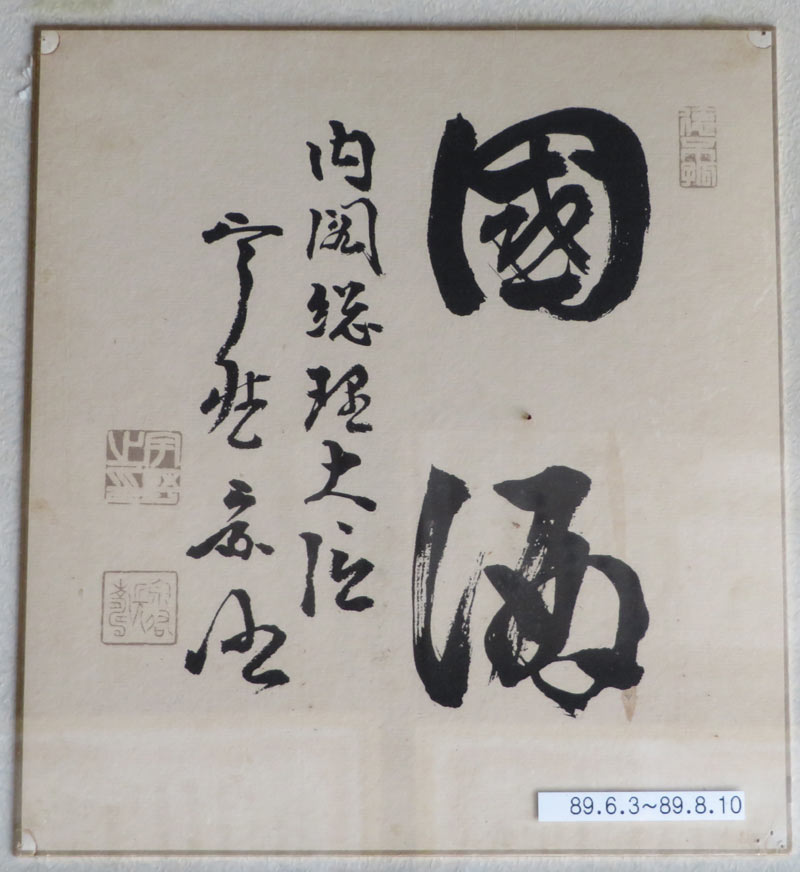 國酒
内閣総理大臣
宇野宗佑
89.6.3~89.8.10